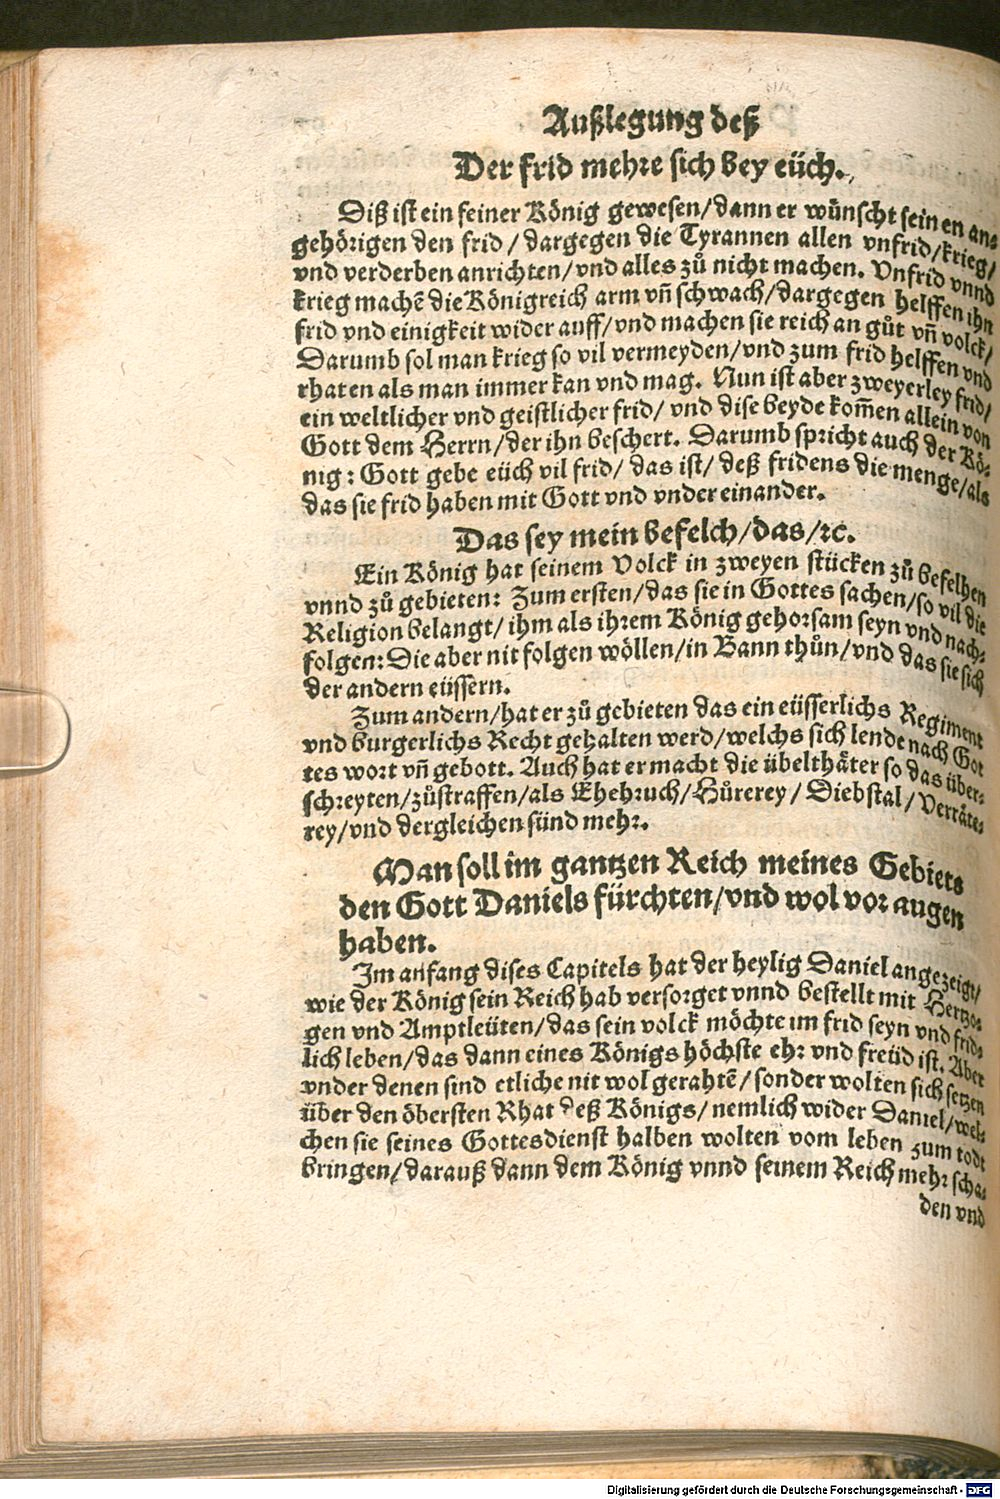 Außlegung deß
Der frid mehre sich bey eüch.
Diß ist ein feiner König gewesen/dann er wünscht seinen an-
gehörigen den frid/dargegen die Tyrannen allen vnfrid/krieg/
vnd verderben anrichten/vnd alles zů nicht machen. Vnfrid vnnd
krieg machẽ die Königreich arm vñ schwach/dargegen helffen ihn
frid vnd einigkeit wider auff/vnd machen sie reich an gůt vñ volck/
Darumb sol man krieg so vil vermeyden/vnd zum frid helffen vnd
rhaten als man immer kan vnd mag. Nun ist aber zweyerley frid/
ein weltlicher vnd geistlicher frid/ vnd dise beyde kom̃en allein von
Gott dem Herrn/der ihn beschert. Darumb spricht auch der Kö-
nig: Gott gebe eüch vil frid/ das ist/ deß fridens die menge/als
das sie frid haben mit Gott vnd vnder einander.
Das sey mein befelch/das/ꝛc.
Ein König hat seinem Volck in zweyen stücken zů befelhen
vnnd zů gebieten: Zum ersten/das sie in Gottes sachen/so vil die
Religion belangt/ihm als ihrem König gehorsam seyn vnd nach-
folgen: Die aber nit folgen wöllen/in Bann thůn/vnd das sie sich
der andern eüssern.
Zum andern/hat er zů gebieten das ein eüsserlichs Regiment
vnd burgerlichs Recht gehalten werd/welchs sich lende nach Got
tes wort vñ gebott. Auch hat er macht die übelthäter so das über-
schreyten/zůstraffen/als Ehebruch/Hůrerey/ Diebstal/Verräte-
rey/vnd dergleichen sünd mehr.
Man soll im gantzen Reich meines Gebiets
den Gott Daniels fürchten/vnd wol vor augen
haben.
Im anfang dises Capitels hat der heylig Daniel angezeigt/
wie der König sein Reich hab versorget vnnd bestellt mit Hertzo-
gen vnd Amptleüten/das sein volck möchte im frid seyn vnd frid-
lich leben/das dann eines Königs höchste ehr vnd freüd ist. Aber
vnder denen sind etliche nit wol gerahtẽ/sonder wolten sich setzen
über den öbersten Rhat deß Königs/nemlich wider Daniel/wel-
chen sie seines Gottesdienst halben wolten vom leben zum todt
bringen/darauß dann dem König vnnd seinem Reich mehr scha-
den vnd
Digitalisierung gefördert durch die Deutsche Forschungsgemeinschaft - DFG